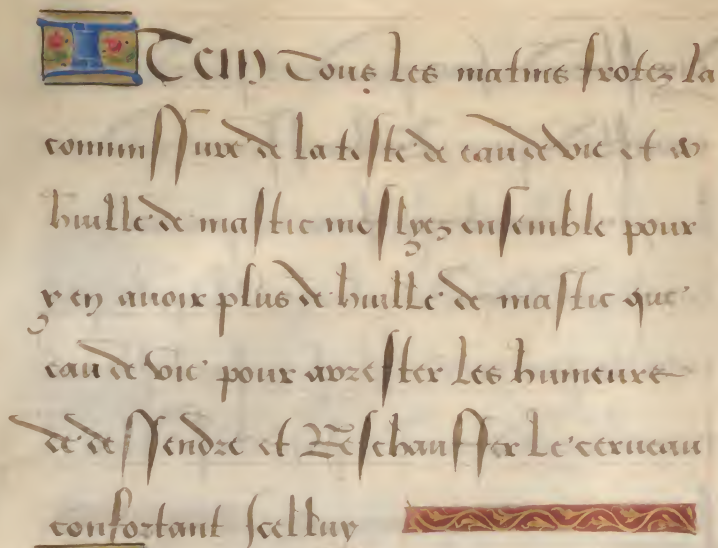 ITem Tous les matins frotez la
commissure de la teste de eau de vie et de
huille de mastic meslyez ensemble pour
y en auoir plus de huille de mastic que
eau de vie pour arrester les humeurs
de dessendre et Reschauffer le cerueau
confortant Icelluy